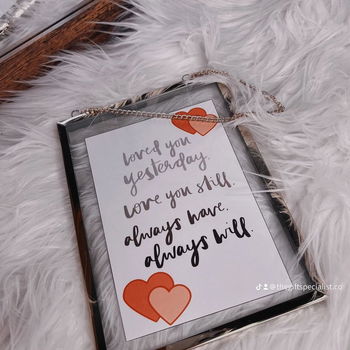 loved you
yesterday.
love you still.
always have.
always will.
@thegiftspecialist.co